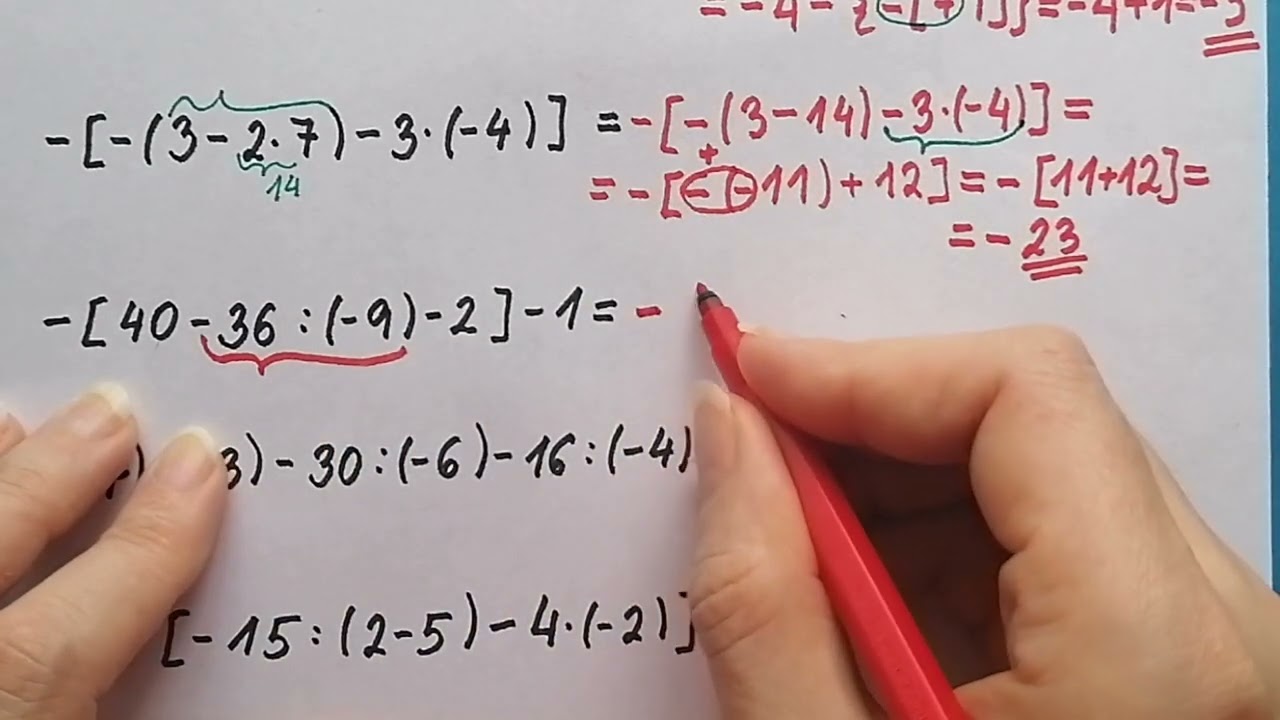 = -4 -
= -4+1 = -3
-[-(3-2·7)-3·(-4)] = -[-(3-14)-3·(-4)] =
14
+
= -[-(-11)+12] = -[11+12] =
= -23
-[40-36:(-9)-2]-1 = -
3)-30:(-6)-16:(-4)
[-15:(2-5)-4·(-2)]